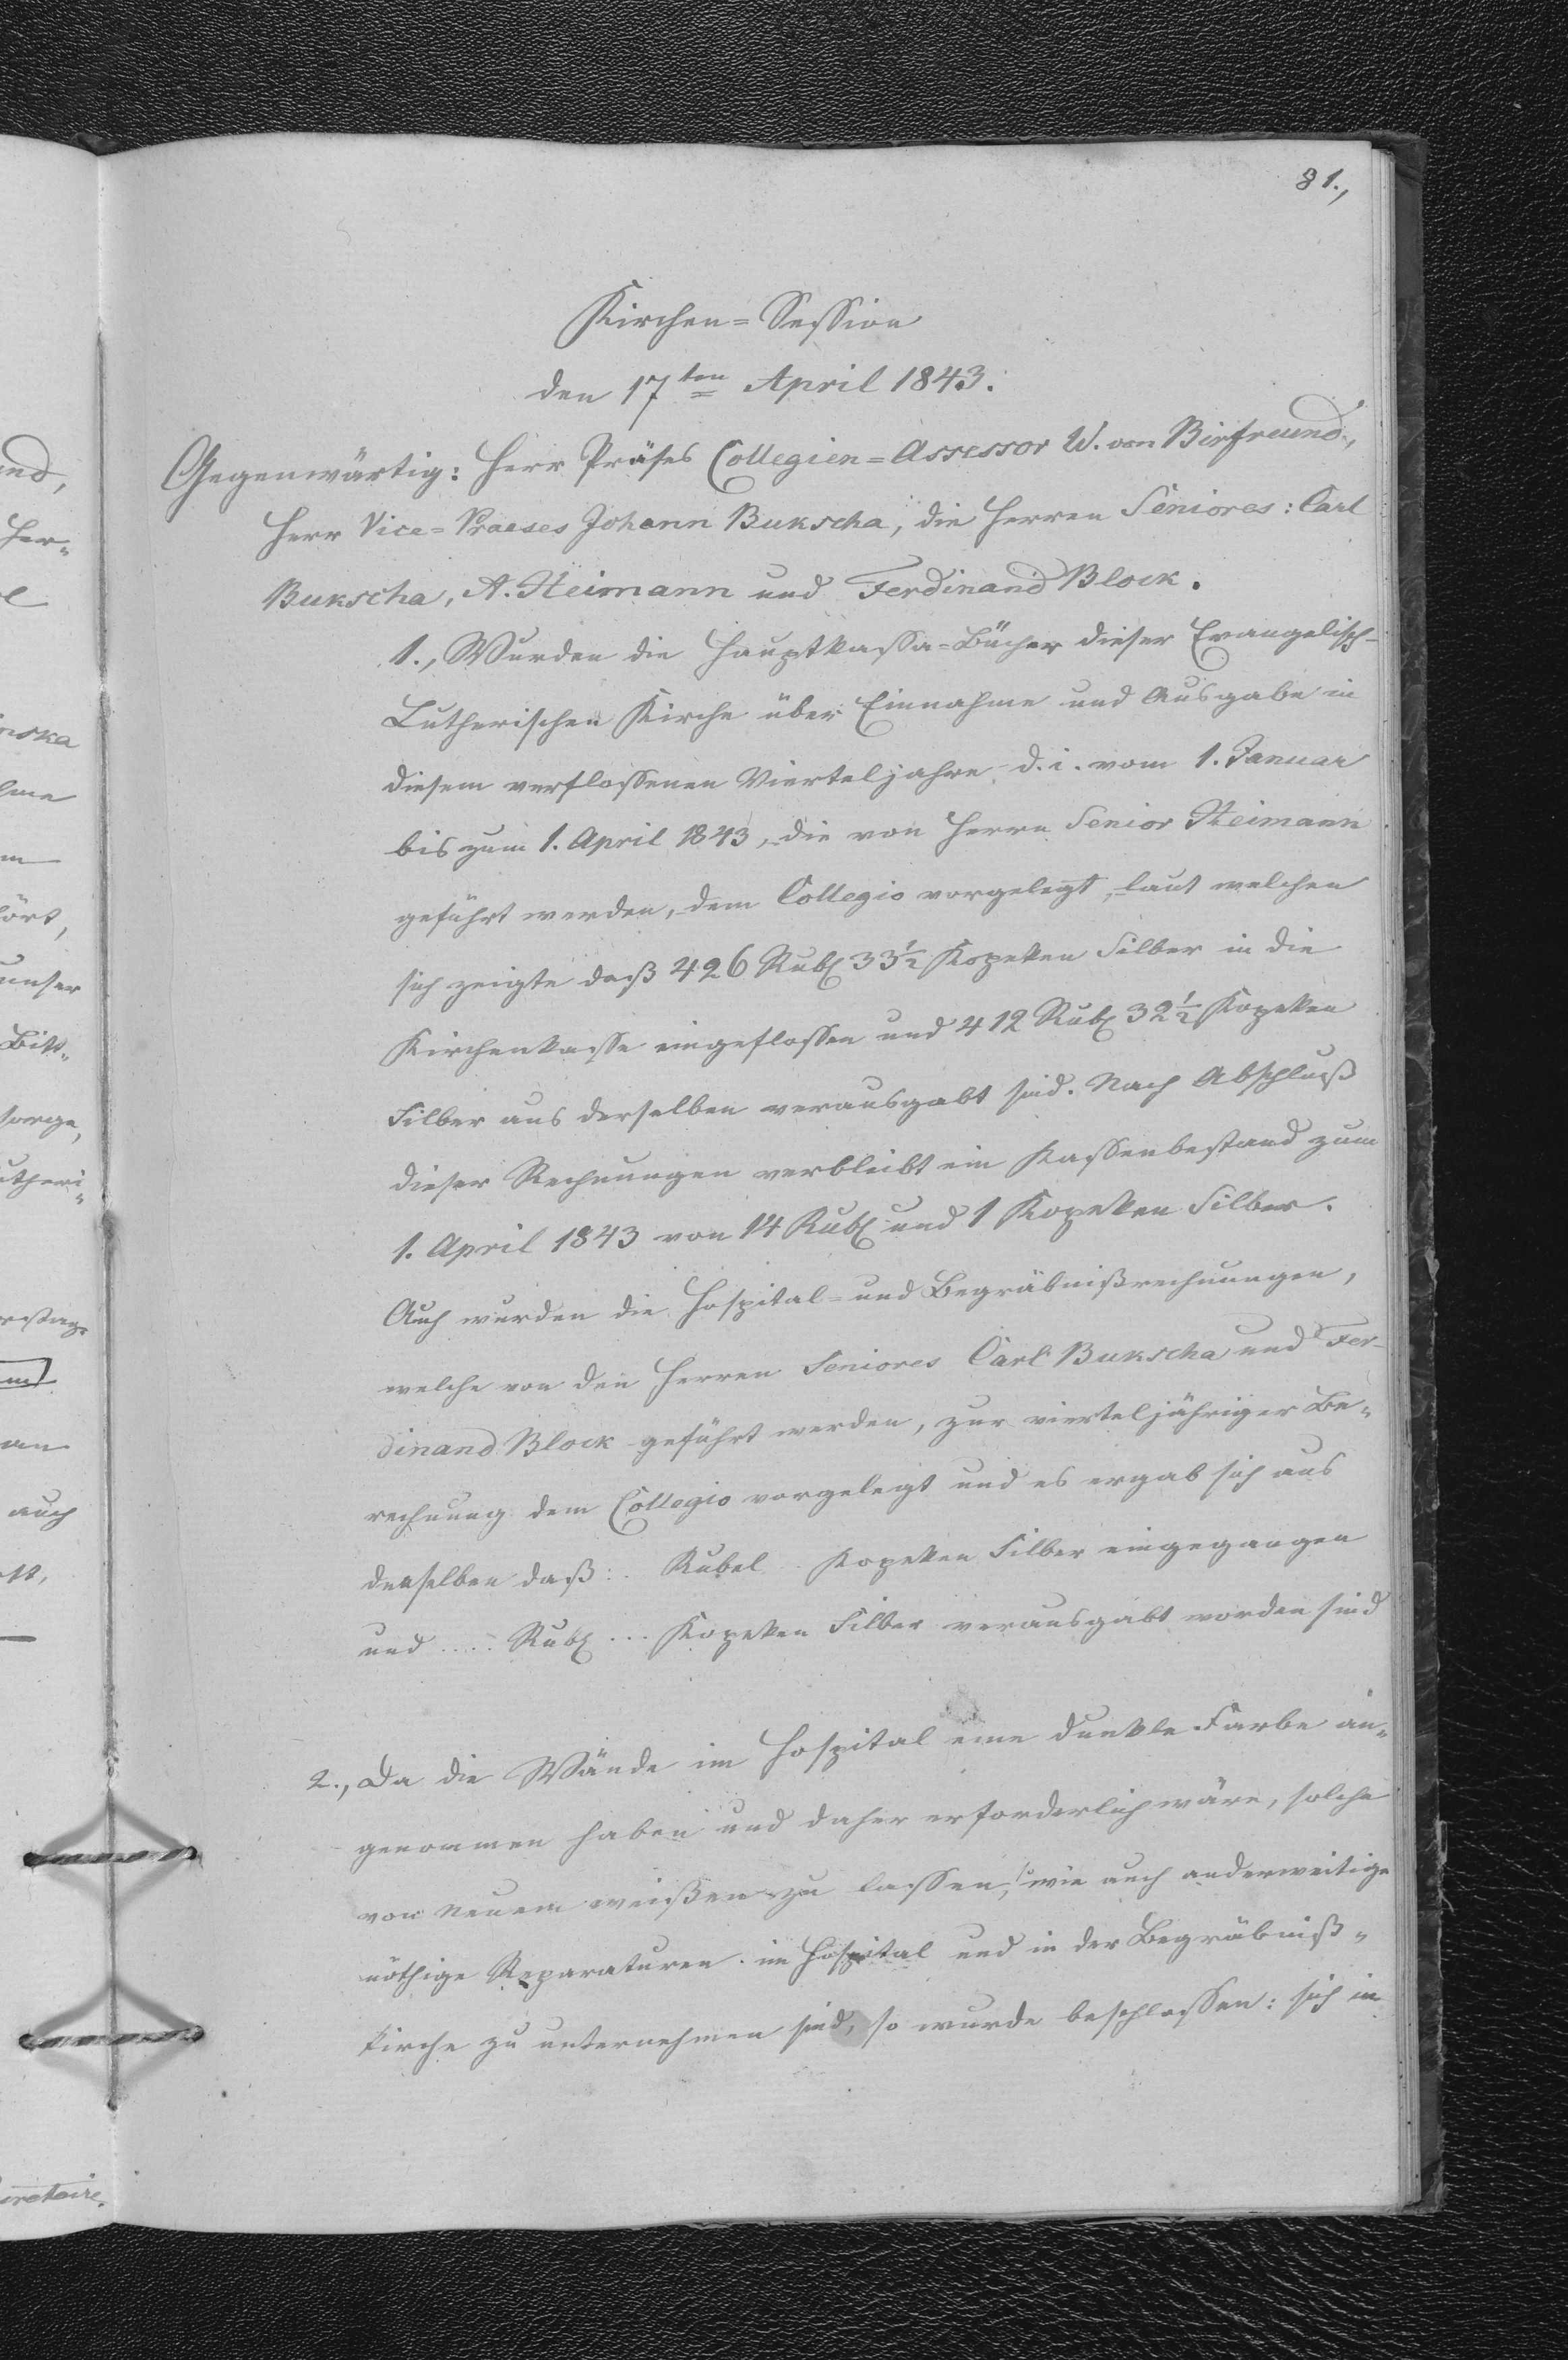 81.,
Kirchen=Session
den 17ten April 1843.
Gegenwärtig: Herr Präses Collegien=Assessor W. von Birfreund,
Herr Vice=Praeses Johann Bukscha, die Herren Seniores: Carl
Bukscha, A. Heimann und Ferdinand Block.
1., Wurden die Hauptkassa=Bücher dieser Evangelisch-
Lutherischen Kirche über Einnahme und Ausgabe in
diesem verflossenen Vierteljahre d. i. vom 1. Januar
bis zum 1. April 1843, die von Herrn Senior Heimann
geführt werden, dem Collegio vorgelegt, laut welchen
sich zeigte daß 426 Rub. 33½ Kopeken Silber in die
Kirchenkasse eingeflossen und 412 Rub. 32½ Kopeken
Silber aus derselben verausgabt sind. Nach Abschluß
dieser Rechnungen verbleibt ein Kassenbestand zum
1. April 1843 von 14 Rub. und 1 Kopeken Silber.
Auch wurden die Hospital= und Begräbnißrechnungen,
welche von den Herren Seniores Carl Bukscha und Fer-
dinand Block geführt werden, zur vierteljähriger Be-
rechnung dem Collegio vorgelegt und es ergab sich aus
denselben daß .. Rubel .. Kopeken Silber eingegangen
und ..... Rub. ... Kopeken Silber verausgabt worden sind
2., Da die Wände im Hospital eine dunkle Farbe an-
genommen haben und daher erforderlich wäre, solche
von Neuem weißen zu lassen, so wie auch anderweitige
nöthige Reparaturen im Hospital und in der Begräbniß-
kirche zu unternehmen sind, so wurde beschlossen: sich in